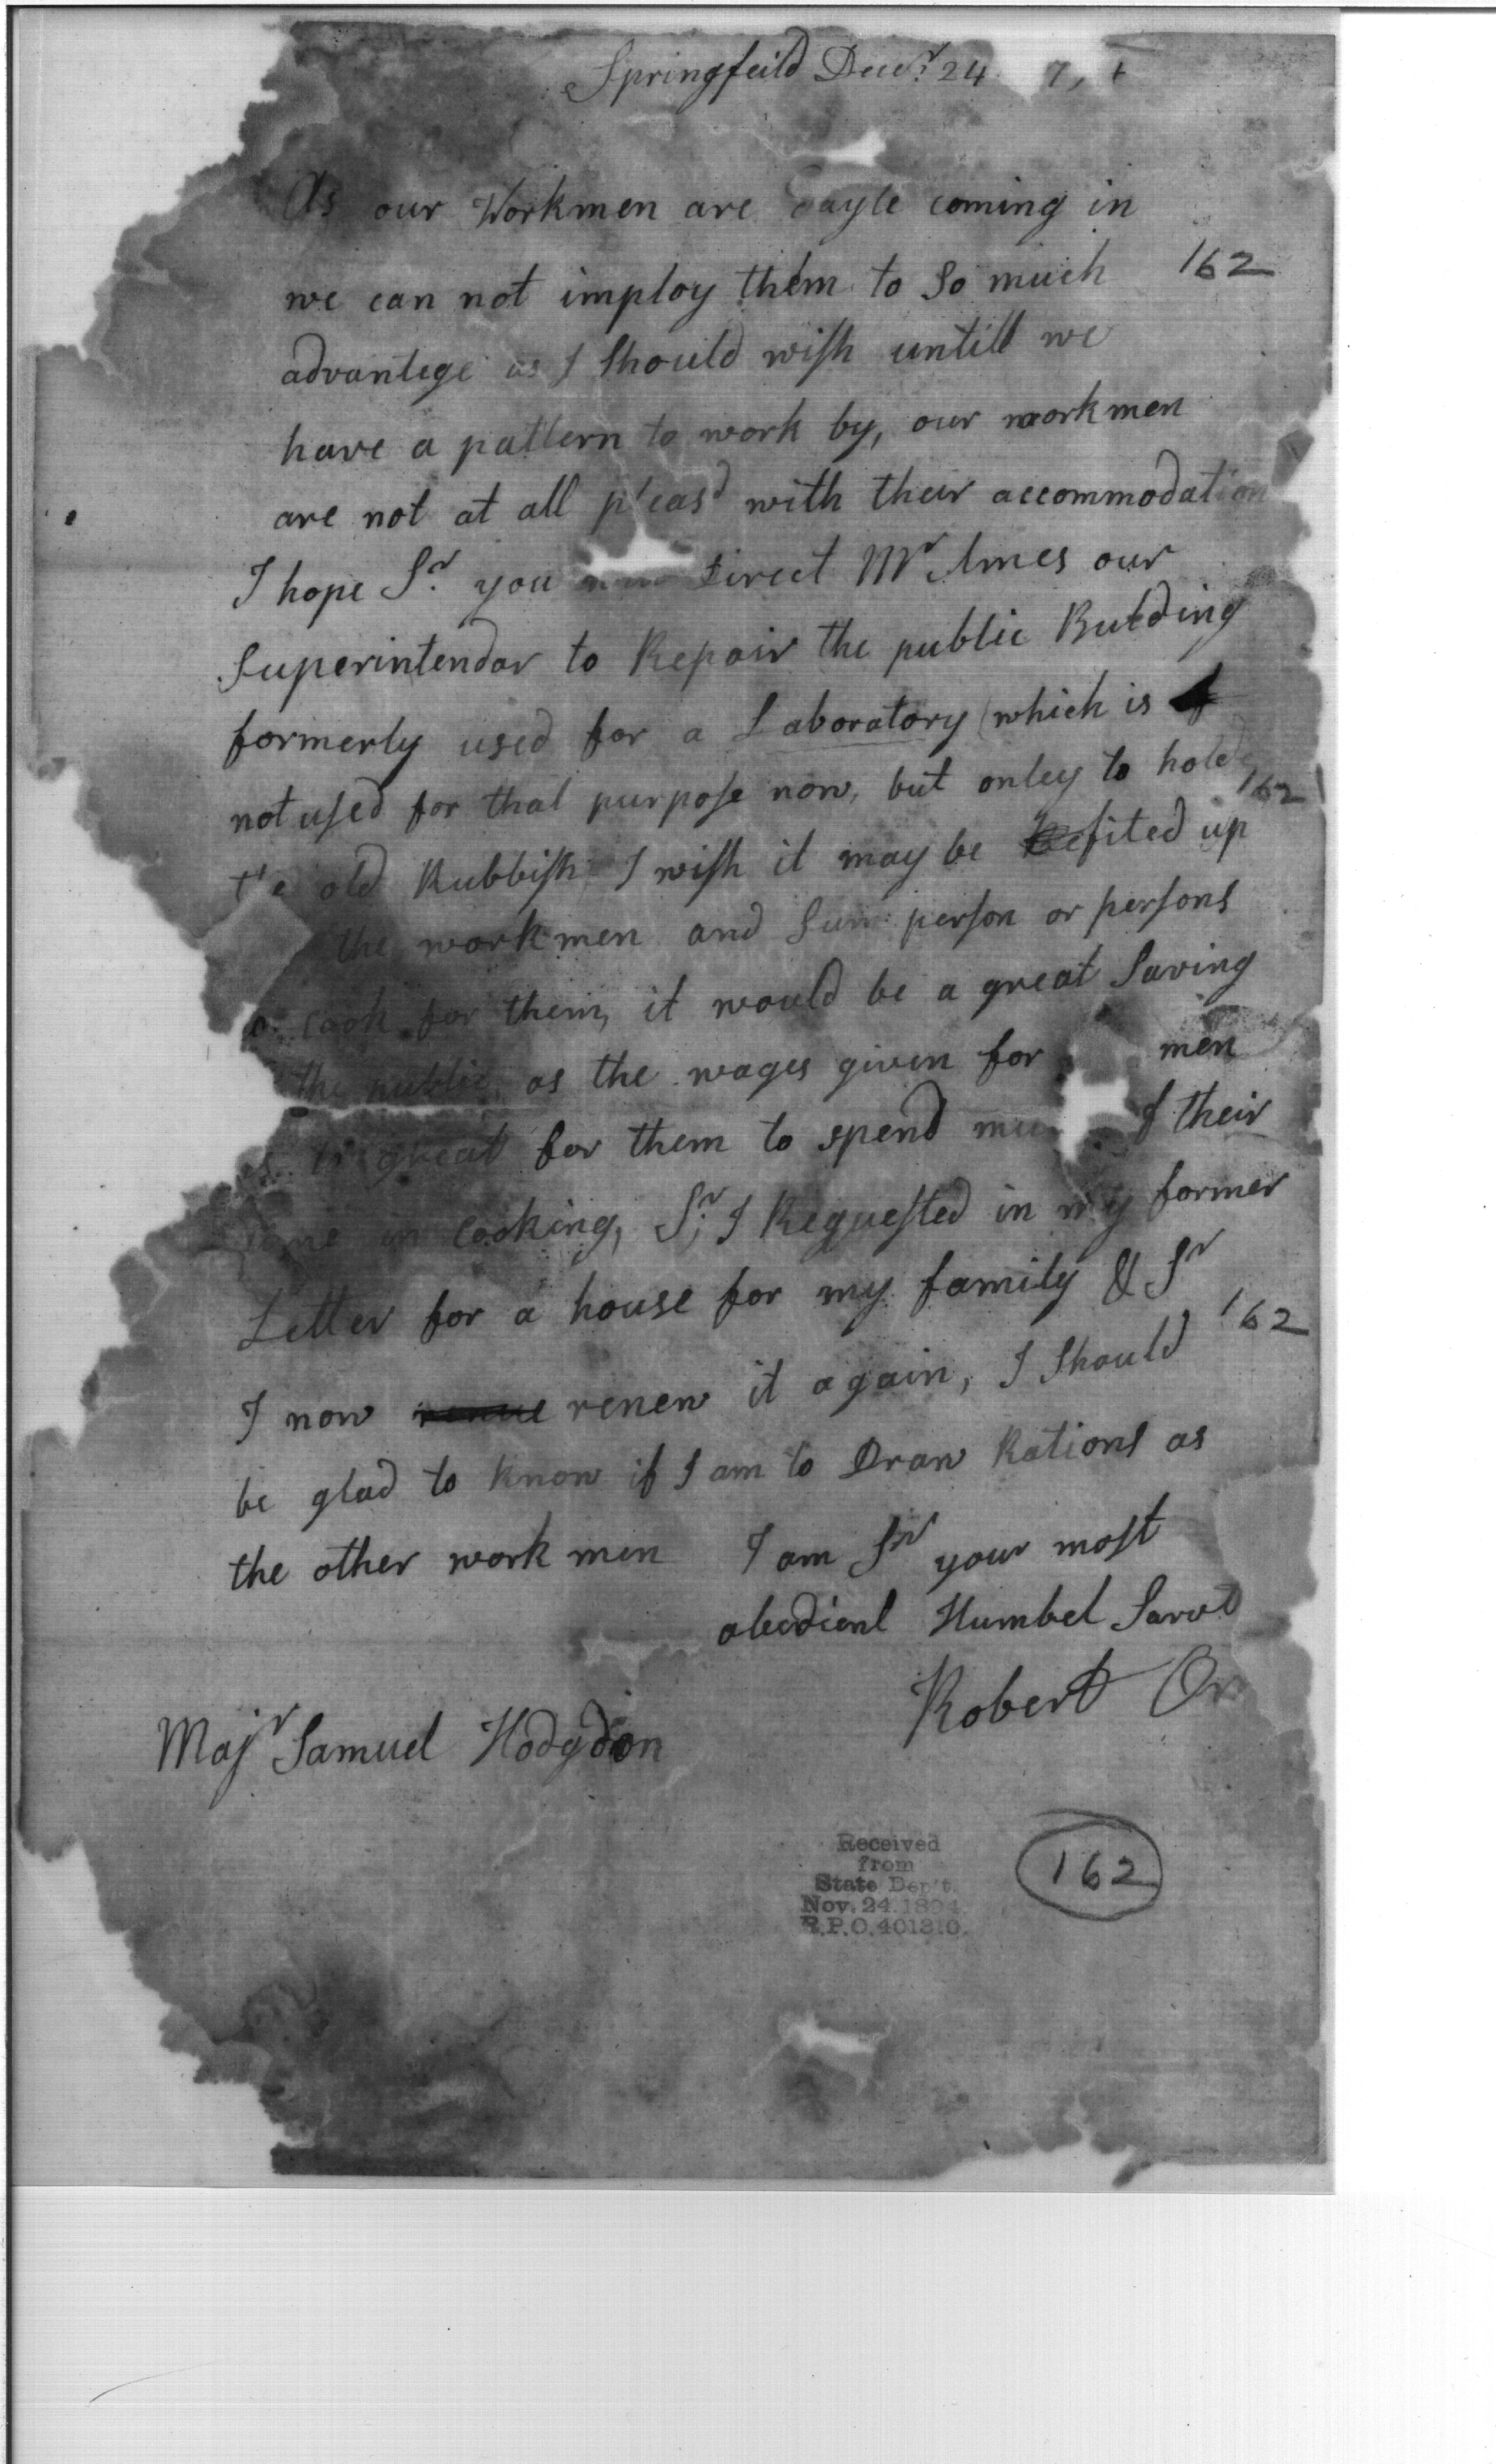 Springfeild Decr. 24 7
As our Workmen are dayle coming in
we can not imploy them to So much 162
advantege as I Should wish untill we
have a pattern to work by, our workmen
are not at all pleasd with their accommodation
I hope Sr. you direct Mr Ames our
Superintendar to Repair the public Bulding
formerly used for a Laboratory (which is
not used for that purpose now, but onley to hold
162
the old Rubbish I wish it may be fited up
the workmen and Sum person or persons
cook for them, it would be a great Saving
the public, as the wages given for men
great for them to spend of their
in cooking, Sr; I Requested in my former
Letter for a house for my family & Sr
I now renue renew it again, I Should 162
be glad to know if I am to Draw Rations as
the other work men I am Sr your most
obedient Humbel Sarvt
Robert Or
Majr Samuel Hodgdon
Received
from
State Dep't.
Nov. 24. 1894.
R.P.O. 401310.
162